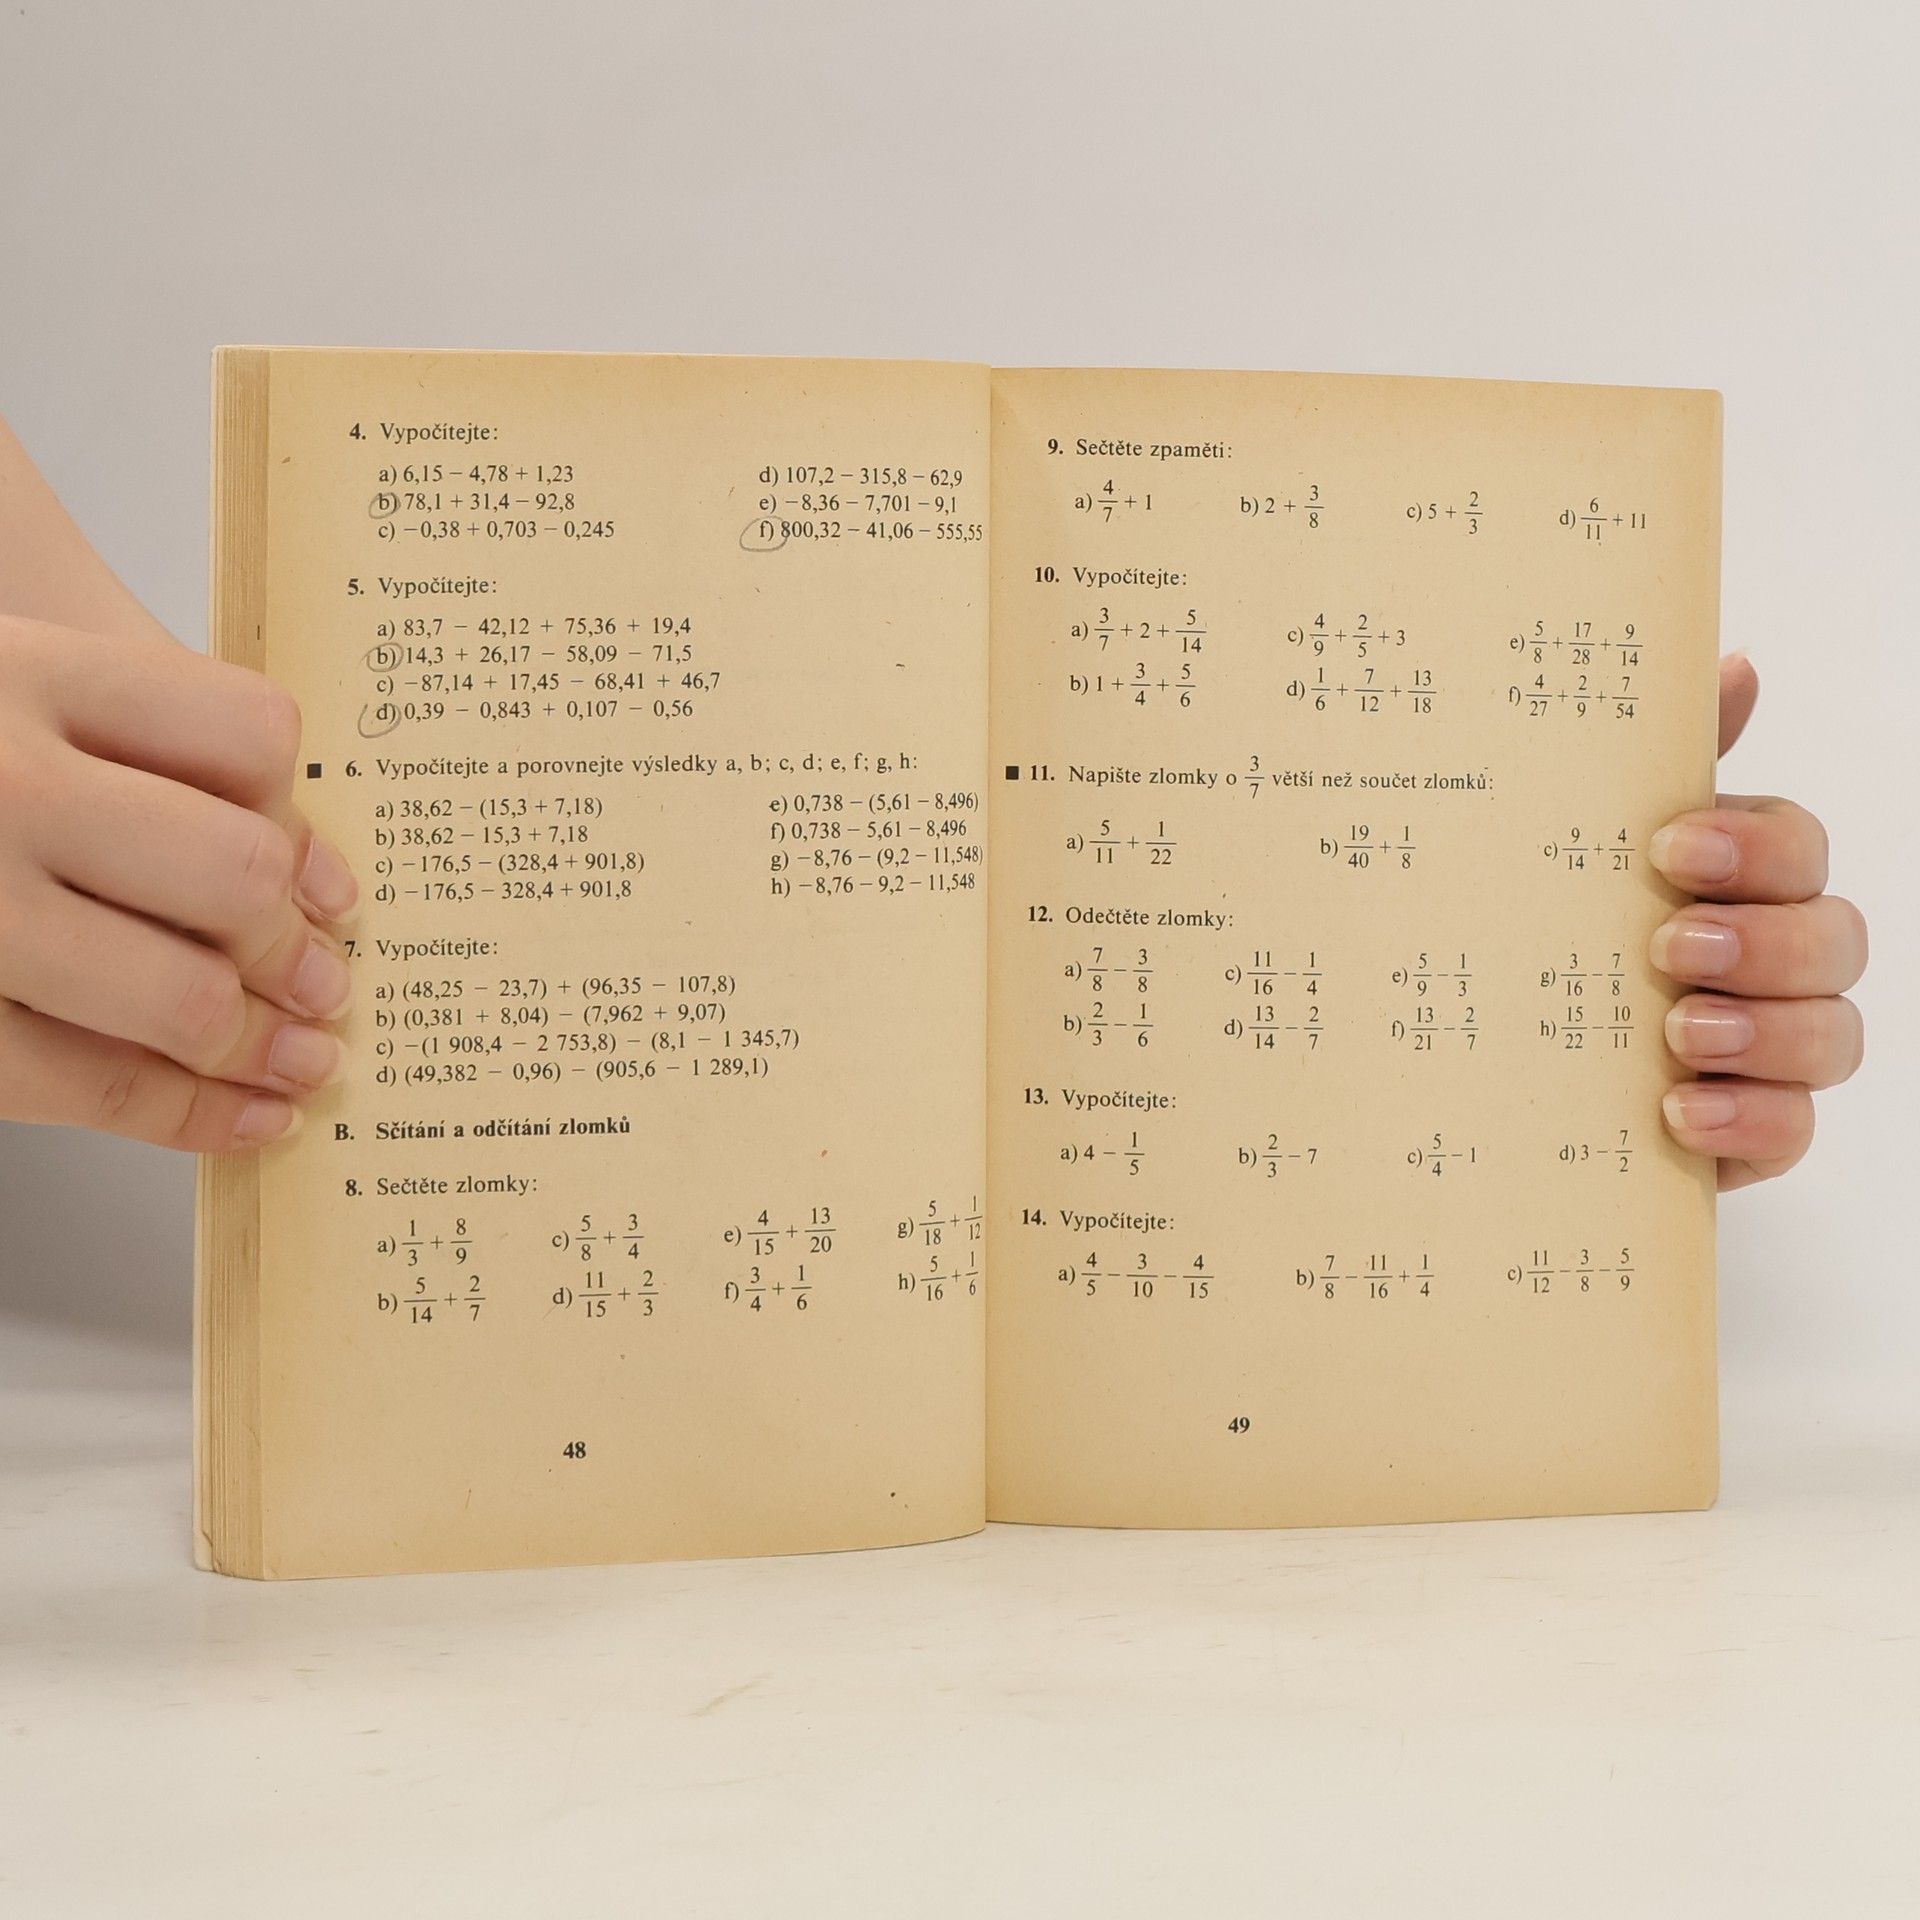 4. Vypočítejte:
a) 6,15 − 4,78 + 1,23 d) 107,2 − 315,8 − 62,9
b) 78,1 + 31,4 − 92,8 e) −8,36 − 7,701 − 9,1
c) −0,38 + 0,703 − 0,245 f) 800,32 − 41,06 − 555,55
5. Vypočítejte:
a) 83,7 − 42,12 + 75,36 + 19,4
b) 14,3 + 26,17 − 58,09 − 71,5
c) −87,14 + 17,45 − 68,41 + 46,7
d) 0,39 − 0,843 + 0,107 − 0,56
■ 6. Vypočítejte a porovnejte výsledky a, b; c, d; e, f; g, h:
a) 38,62 − (15,3 + 7,18) e) 0,738 − (5,61 − 8,496)
b) 38,62 − 15,3 + 7,18 f) 0,738 − 5,61 − 8,496
c) −176,5 − (328,4 + 901,8) g) −8,76 − (9,2 − 11,548)
d) −176,5 − 328,4 + 901,8 h) −8,76 − 9,2 − 11,548
7. Vypočítejte:
a) (48,25 − 23,7) + (96,35 − 107,8)
b) (0,381 + 8,04) − (7,962 + 9,07)
c) −(1 908,4 − 2 753,8) − (8,1 − 1 345,7)
d) (49,382 − 0,96) − (905,6 − 1 289,1)
B. Sčítání a odčítání zlomků
8. Sečtěte zlomky:
a) 1/3 + 8/9 c) 5/8 + 3/4 e) 4/15 + 13/20 g) 5/18 + 1/12
b) 5/14 + 2/7 d) 11/15 + 2/3 f) 3/4 + 1/6 h) 5/16 + 1/6
48
9. Sečtěte zpaměti:
a) 4/7 + 1 b) 2 + 3/8 c) 5 + 2/3 d) 6/11 + 11
10. Vypočítejte:
a) 3/7 + 2 + 5/14 c) 4/9 + 2/5 + 3 e) 5/8 + 17/28 + 9/14
b) 1 + 3/4 + 5/6 d) 1/6 + 7/12 + 13/18 f) 4/27 + 2/9 + 7/54
■ 11. Napište zlomky o 3/7 větší než součet zlomků:
a) 5/11 + 1/22 b) 19/40 + 1/8 c) 9/14 + 4/21
12. Odečtěte zlomky:
a) 7/8 − 3/8 c) 11/16 − 1/4 e) 5/9 − 1/3 g) 3/16 − 7/8
b) 2/3 − 1/6 d) 13/14 − 2/7 f) 13/21 − 2/7 h) 15/22 − 10/11
13. Vypočítejte:
a) 4 − 1/5 b) 2/3 − 7 c) 5/4 − 1 d) 3 − 7/2
14. Vypočítejte:
a) 4/5 − 3/10 − 4/15 b) 7/8 − 11/16 + 1/4 c) 11/12 − 3/8 − 5/9
49